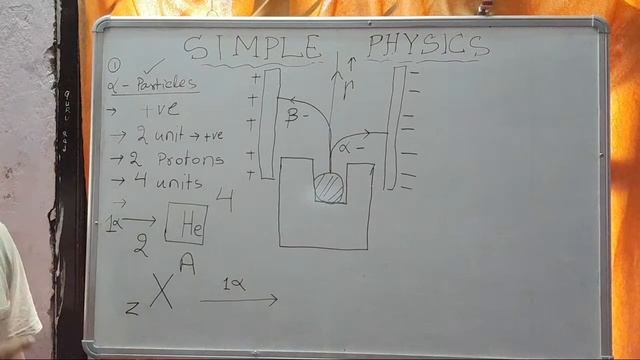 SIMPLE PHYSICS
①
α- Particles
→ +ve
→ 2 unit → +ve
→ 2 Protons
→ 4 units
→
1α → 2 He 4
z X A 1α →
+ + + + +
β-
r
α-
- - - - - - -
GURU